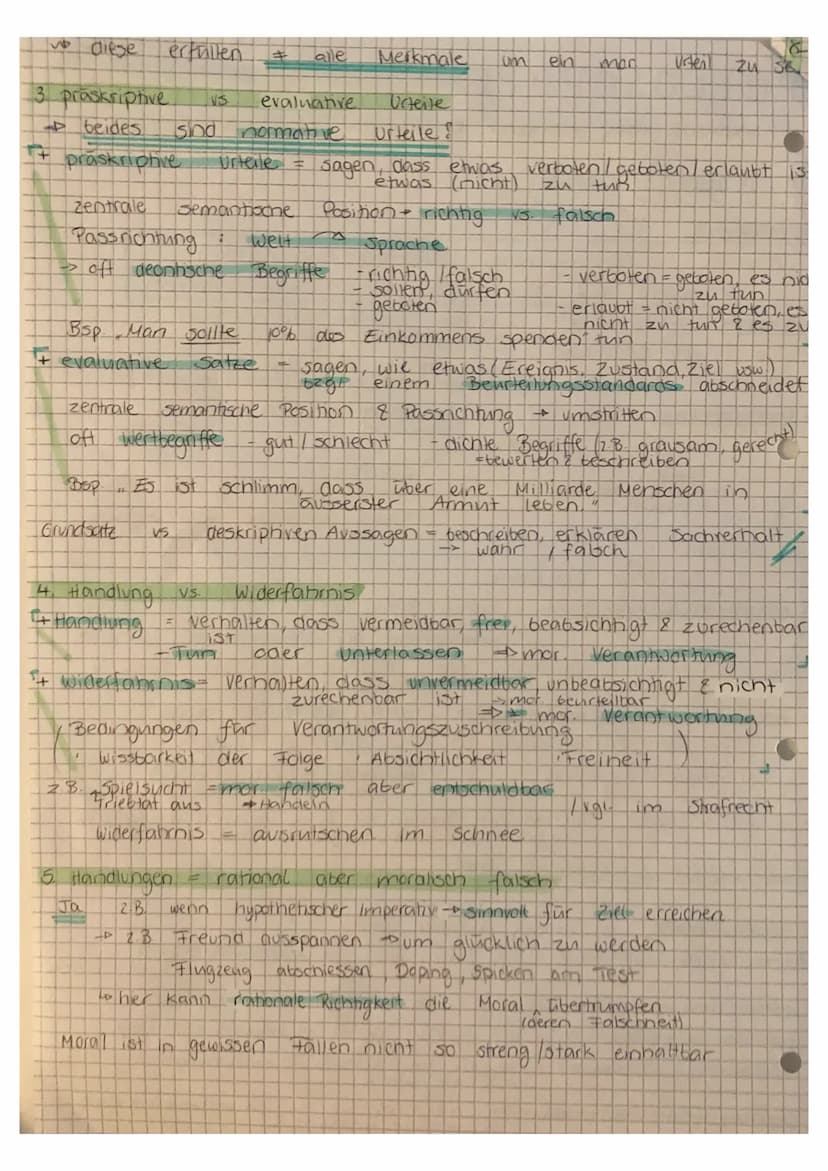 ↳ diese erfüllen ≠ alle Merkmale um ein mor. Urteil zu
3. präskriptive vs evaluative Urteile
→ beides sind normative Urteile!
präskriptive Urteile = sagen, dass etwas verboten/geboten/erlaubt is
etwas (nicht) zu tun
zentrale semantische Position → richtig vs. falsch
Passrichtung : Welt → Sprache
→ oft deontische Begriffe - richtig / falsch - verboten = geboten, es nic
- sollen, dürfen zu tun
- geboten - erlaubt = nicht geboten, es
nicht zu tun & es zu
Bsp. „Man sollte 10% des Einkommens spenden" tun
evaluative Sätze = sagen, wie etwas (Ereignis, Zustand, Ziel usw.)
bzgl. einem Beurteilungsstandards abschneidet
zentrale semantische Position & Passrichtung → umstritten
oft Wertbegriffe - gut / schlecht - dichte Begriffe (z.B. grausam, gerecht)
= bewerten & beschreiben
Bsp. „Es ist schlimm, dass über eine Milliarde Menschen in
äusserster Armut leben."
Grundsatz vs deskriptiven Aussagen = beschreiben, erklären Sachverhalt
→ wahr / falsch
4. Handlung vs. Widerfahrnis
Handlung = Verhalten, dass vermeidbar, frei, beabsichtigt & zurechenbar
ist
- Tun oder Unterlassen → mor. Verantwortung
Widerfahrnis = Verhalten, dass unvermeidbar, unbeabsichtigt & nicht
zurechenbar ist → mor. beurteilbar
⇒ ≠ mor. Verantwortung
( Bedingungen für Verantwortungszuschreibung
· Wissbarkeit der Folge · Absichtlichkeit · Freiheit )
z.B. Spielsucht = mor. falsch aber entschuldbar
Triebtat aus ≠ Handeln / vgl. im Strafrecht
Widerfahrnis = ausrutschen im Schnee
5. Handlungen = rational aber moralisch falsch
Ja z.B. wenn hypothetischer Imperativ → sinnvoll für Ziel erreichen
→ z.B. Freund ausspannen → um glücklich zu werden
Flugzeug abschiessen, Doping, Spicken am Test
↳ hier kann rationale Richtigkeit die Moral übertrumpfen
(deren Falschheit)
Moral ist in gewissen Fällen nicht so streng / stark einhaltbar